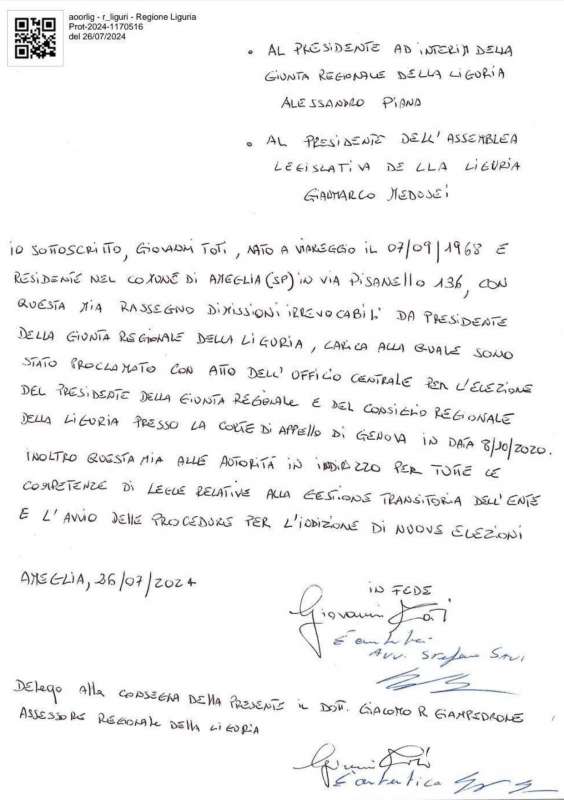 aoorlig - r_liguri - Regione Liguria
Prot-2024-1170516
del 26/07/2024
• AL PRESIDENTE AD INTERIM DELLA
GIUNTA REGIONALE DELLA LIGURIA
ALESSANDRO PIANA
• AL PRESIDENTE DELL'ASSEMBLEA
LEGISLATIVA DELLA LIGURIA
GIANMARCO MEDUSEI
IO SOTTOSCRITTO, GIOVANNI TOTI, NATO A VIAREGGIO IL 07/09/1968 E
RESIDENTE NEL COMUNE DI AMEGLIA (SP) IN VIA PISANELLO 136, CON
QUESTA MIA RASSEGNO DIMISSIONI IRREVOCABILI DA PRESIDENTE
DELLA GIUNTA REGIONALE DELLA LIGURIA, CARICA ALLA QUALE SONO
STATO PROCLAMATO CON ATTO DELL'UFFICIO CENTRALE PER L'ELEZIONE
DEL PRESIDENTE DELLA GIUNTA REGIONALE E DEL CONSIGLIO REGIONALE
DELLA LIGURIA PRESSO LA CORTE DI APPELLO DI GENOVA IN DATA 8/10/2020.
INOLTRO QUESTA MIA ALLE AUTORITÀ IN INDIRIZZO PER TUTTE LE
COMPETENZE DI LEGGE RELATIVE ALLA GESTIONE TRANSITORIA DELL'ENTE
E L'AVVIO DELLE PROCEDURE PER L'INDIZIONE DI NUOVE ELEZIONI
AMEGLIA, 26/07/2024
IN FEDE
Giovanni Toti
È autentica
AVV. Stefano Savi
DELEGO ALLA CONSEGNA DELLA PRESENTE IL DOTT. GIACOMO R GIAMPEDRONE
ASSESSORE REGIONALE DELLA LIGURIA
Giovanni Toti
È autentica